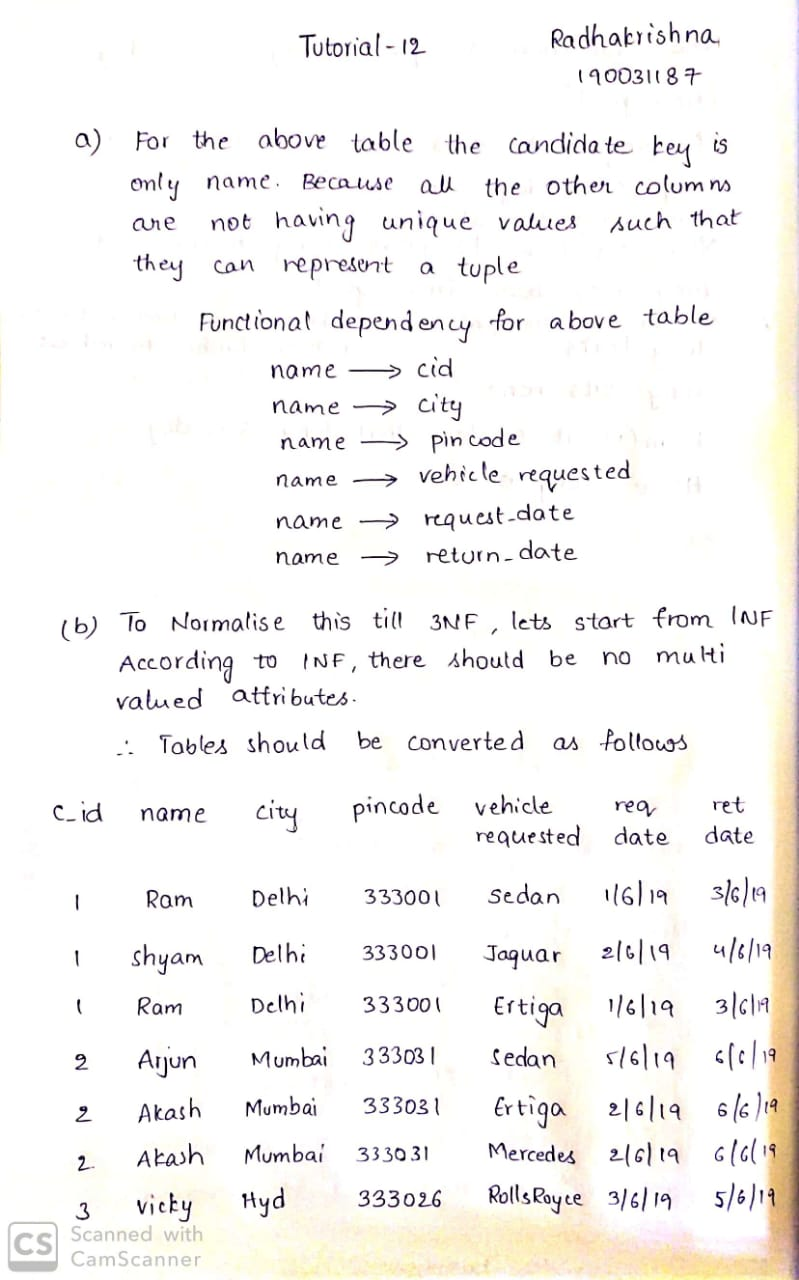 Tutorial - 12
Radhakrishna
190031187
a) For the above table the candidate key is
only name. Because all the other columns
are not having unique values such that
they can represent a tuple
Functional dependency for above table
name → cid
name → city
name → pincode
name → vehicle requested
name → request_date
name → return_date
(b) To Normalise this till 3NF, lets start from 1NF
According to 1NF, there should be no multi
valued attributes.
∴ Tables should be converted as follows
c_id name city pincode vehicle req ret
requested date date
1 Ram Delhi 333001 Sedan 1/6/19 3/6/19
1 Shyam Delhi 333001 Jaquar 2/6/19 4/6/19
1 Ram Delhi 333001 Ertiga 1/6/19 3/6/19
2 Arjun Mumbai 333031 Sedan 5/6/19 6/6/19
2 Akash Mumbai 333031 Ertiga 2/6/19 6/6/19
2 Akash Mumbai 333031 Mercedes 2/6/19 6/6/19
3 Vicky Hyd 333026 RollsRoyce 3/6/19 5/6/19
CS Scanned with
CamScanner